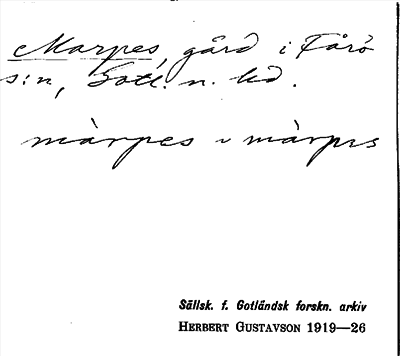 Marpes, gård i Fårö
s:n, Gotl. n. hd.
màrpes ~ màrpıs
Sällsk. f. Gotländsk forskn. arkiv
HERBERT GUSTAVSON 1919—26